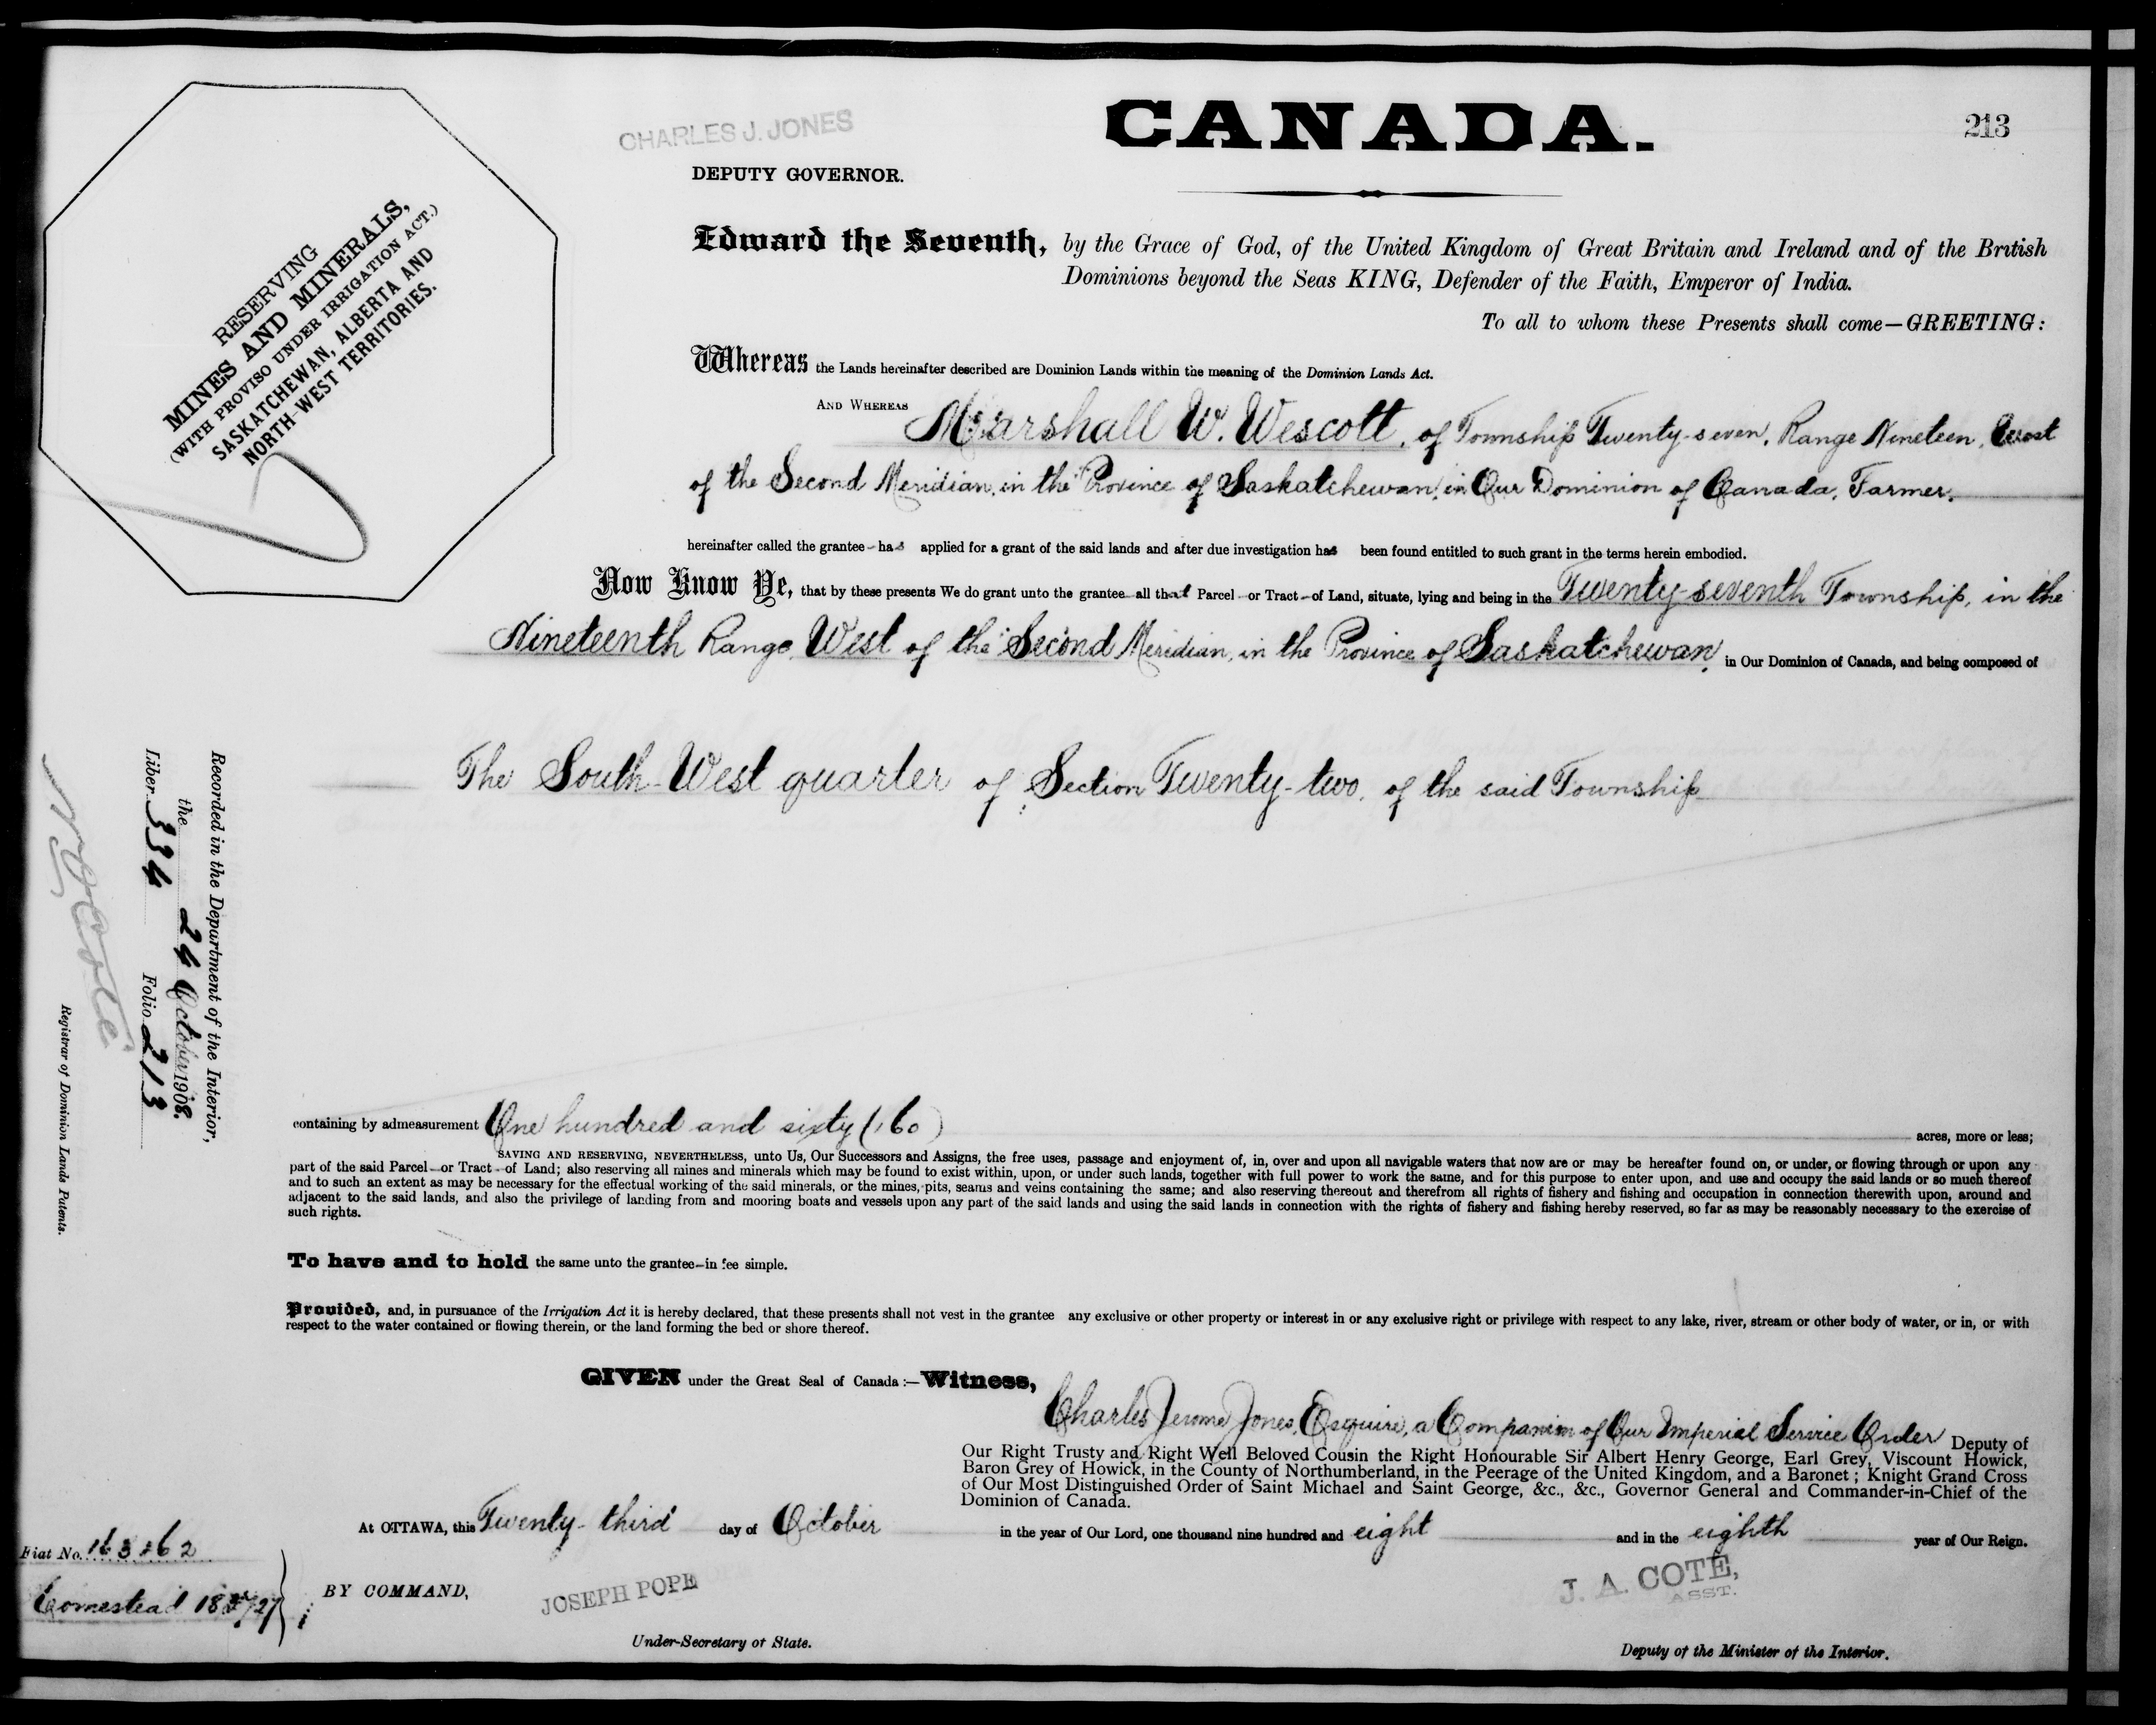 CHARLES J. JONES
DEPUTY GOVERNOR.
CANADA.
213
RESERVING
MINES AND MINERALS,
(WITH PROVISO UNDER IRRIGATION ACT.)
SASKATCHEWAN, ALBERTA AND
NORTH-WEST TERRITORIES.
Edward the Seventh, by the Grace of God, of the United Kingdom of Great Britain and Ireland and of the British
Dominions beyond the Seas KING, Defender of the Faith, Emperor of India.
To all to whom these Presents shall come—GREETING:
Whereas the Lands hereinafter described are Dominion Lands within the meaning of the Dominion Lands Act.
AND WHEREAS Marshall W. Wescott, of Township Twenty-seven, Range Nineteen, West
of the Second Meridian, in the Province of Saskatchewan, in Our Dominion of Canada, Farmer,
hereinafter called the grantee has applied for a grant of the said lands and after due investigation has been found entitled to such grant in the terms herein embodied.
Now Know Ye, that by these presents We do grant unto the grantee all that Parcel or Tract of Land, situate, lying and being in the Twenty-seventh Township, in the
Nineteenth Range, West of the Second Meridian, in the Province of Saskatchewan, in Our Dominion of Canada, and being composed of
The South-West quarter of Section Twenty-two, of the said Township
containing by admeasurement One hundred and sixty (160) acres, more or less;
SAVING AND RESERVING, NEVERTHELESS, unto Us, Our Successors and Assigns, the free uses, passage and enjoyment of, in, over and upon all navigable waters that now are or may be hereafter found on, or under, or flowing through or upon any
part of the said Parcel or Tract of Land; also reserving all mines and minerals which may be found to exist within, upon, or under such lands, together with full power to work the same, and for this purpose to enter upon, and use and occupy the said lands or so much thereof
and to such an extent as may be necessary for the effectual working of the said minerals, or the mines, pits, seams and veins containing the same; and also reserving thereout and therefrom all rights of fishery and fishing and occupation in connection therewith upon, around and
adjacent to the said lands, and also the privilege of landing from and mooring boats and vessels upon any part of the said lands and using the said lands in connection with the rights of fishery and fishing hereby reserved, so far as may be reasonably necessary to the exercise of
such rights.
To have and to hold the same unto the grantee in fee simple.
Provided, and, in pursuance of the Irrigation Act it is hereby declared, that these presents shall not vest in the grantee any exclusive or other property or interest in or any exclusive right or privilege with respect to any lake, river, stream or other body of water, or in, or with
respect to the water contained or flowing therein, or the land forming the bed or shore thereof.
GIVEN under the Great Seal of Canada:—Witness,
Charles Jerome Jones, Esquire, a Companion of Our Imperial Service Order Deputy of
Our Right Trusty and Right Well Beloved Cousin the Right Honourable Sir Albert Henry George, Earl Grey, Viscount Howick,
Baron Grey of Howick, in the County of Northumberland, in the Peerage of the United Kingdom, and a Baronet; Knight Grand Cross
of Our Most Distinguished Order of Saint Michael and Saint George, &c., &c., Governor General and Commander-in-Chief of the
Dominion of Canada.
At OTTAWA, this Twenty-third day of October in the year of Our Lord, one thousand nine hundred and eight and in the eighth year of Our Reign.
BY COMMAND,
JOSEPH POPE
Under-Secretary of State.
J. A. COTÉ,
ASST.
Deputy of the Minister of the Interior.
Recorded in the Department of the Interior,
the 24 October 1908.
Liber 334 Folio 213
Registrar of Dominion Lands Patents.
Fiat No.
Homestead